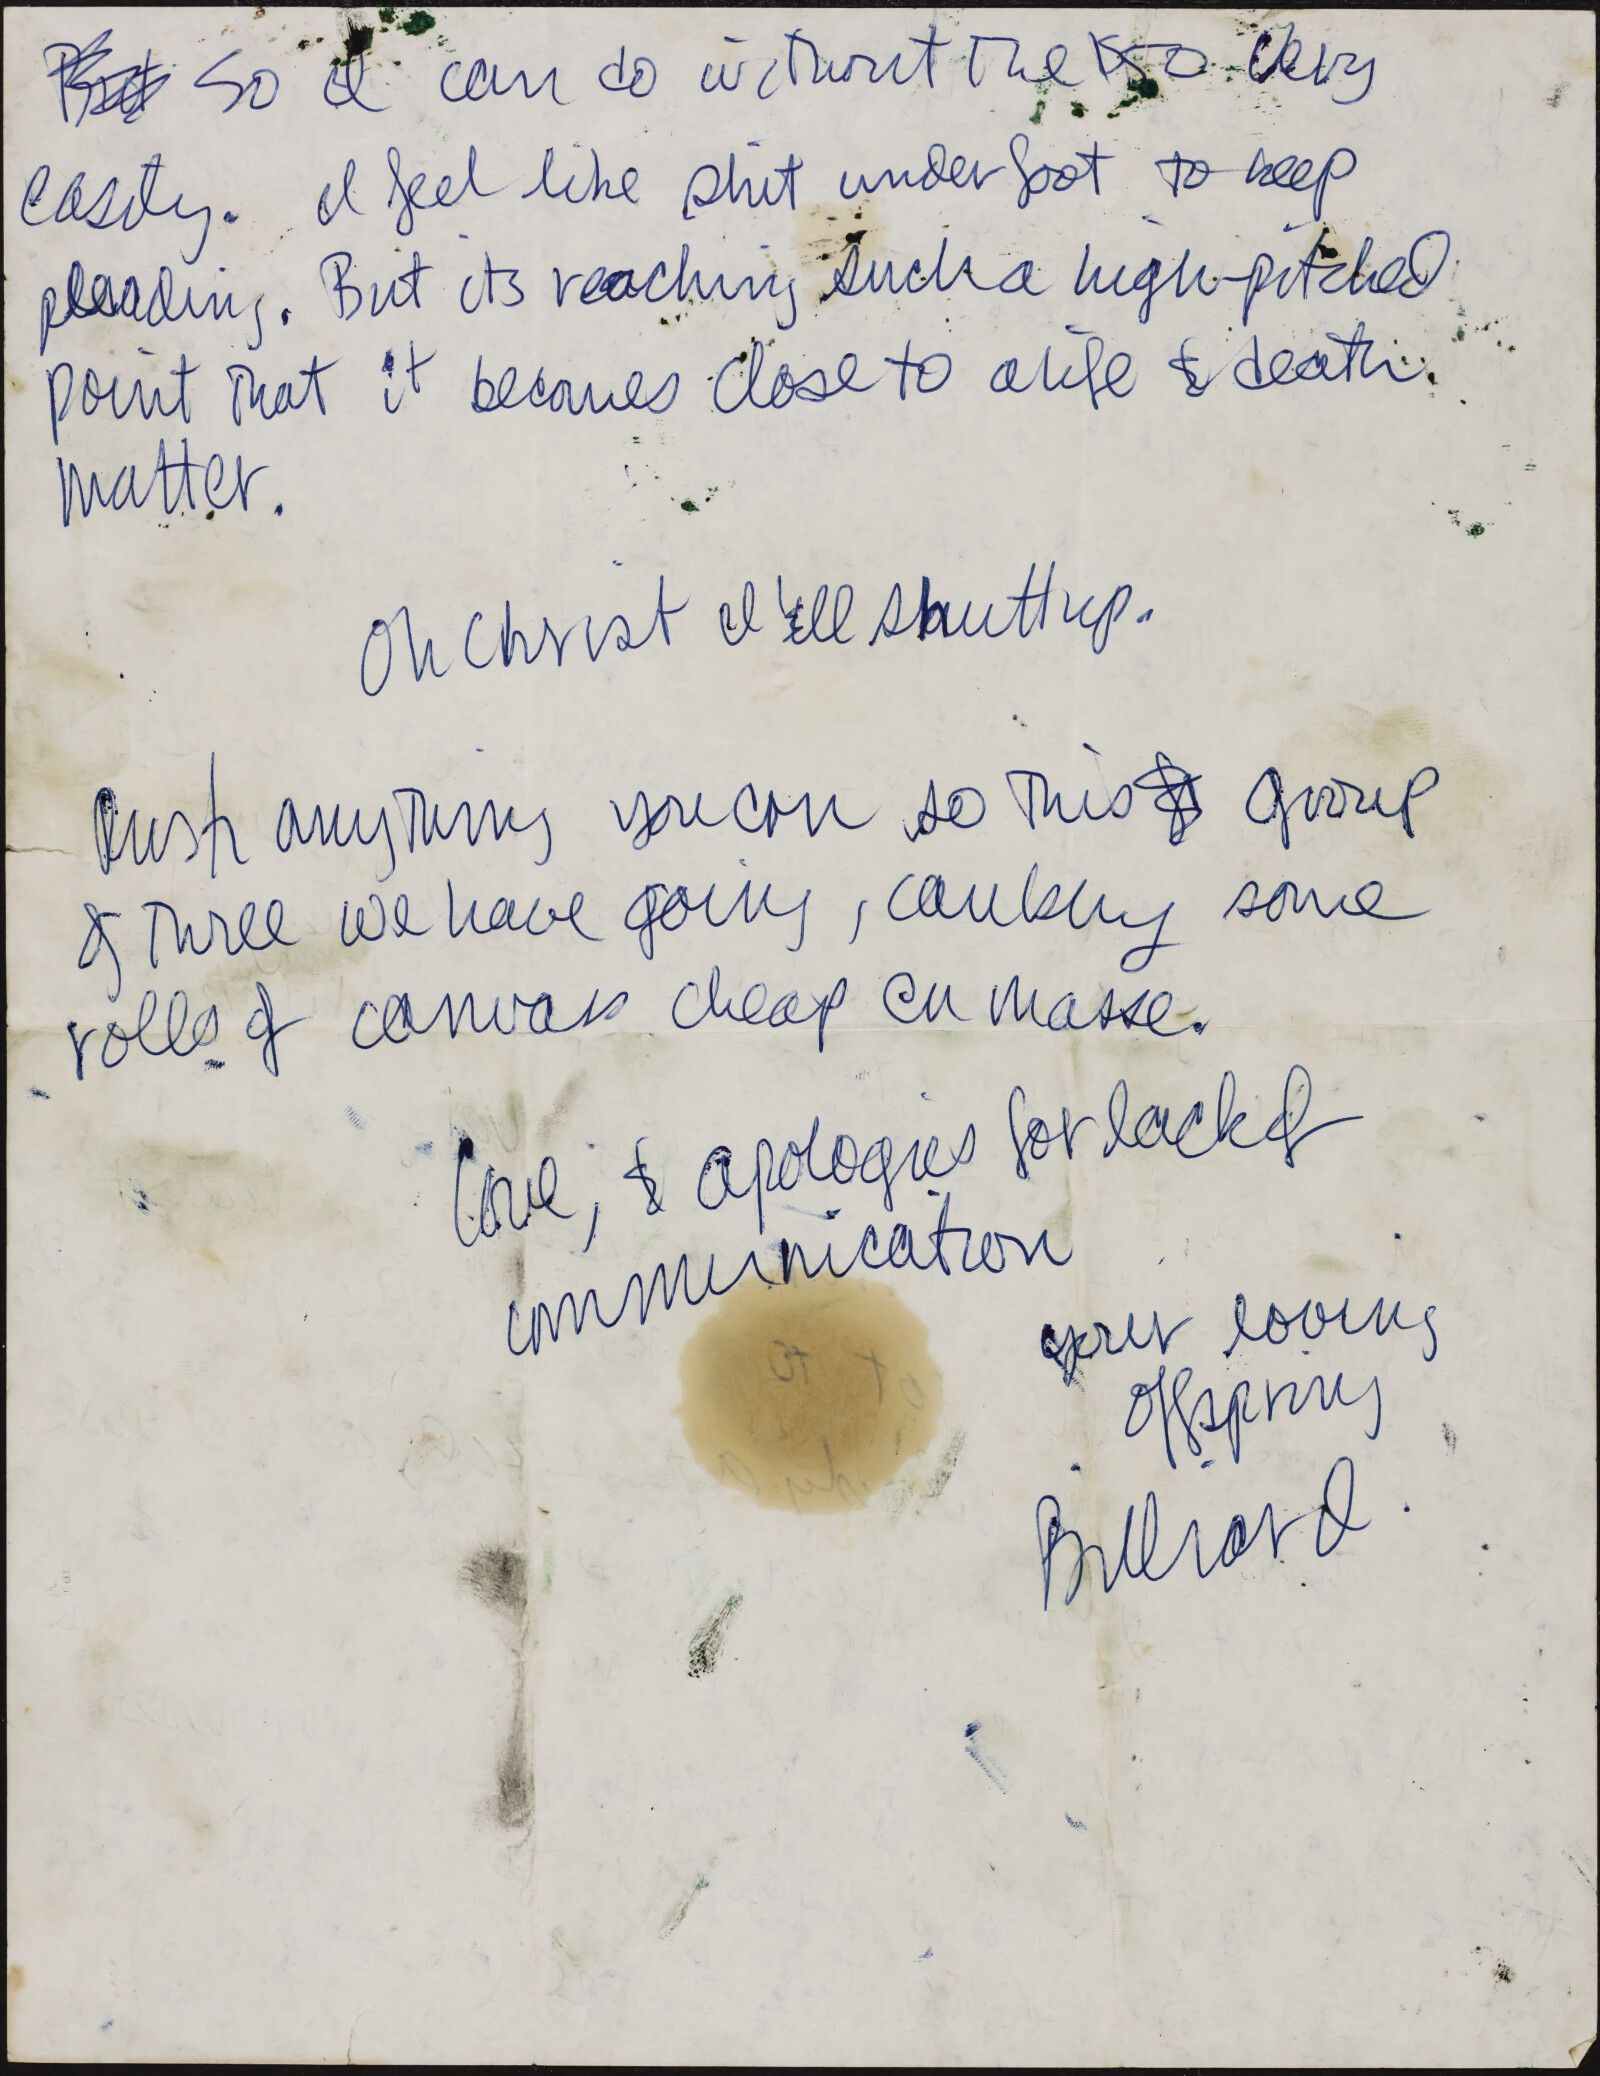 But So I can do without the 150 very
easily. I feel like shit underfoot to keep
pleading. But its reaching such a high-pitched
point that it becomes close to a life & death
matter.
Oh Christ I'll shuttup.
Rush anything you can so this group
of three we have going, can buy some
rolls of canvas cheap en masse.
Love, & apologies for lack of
communication
your loving
offspring
Billiard.